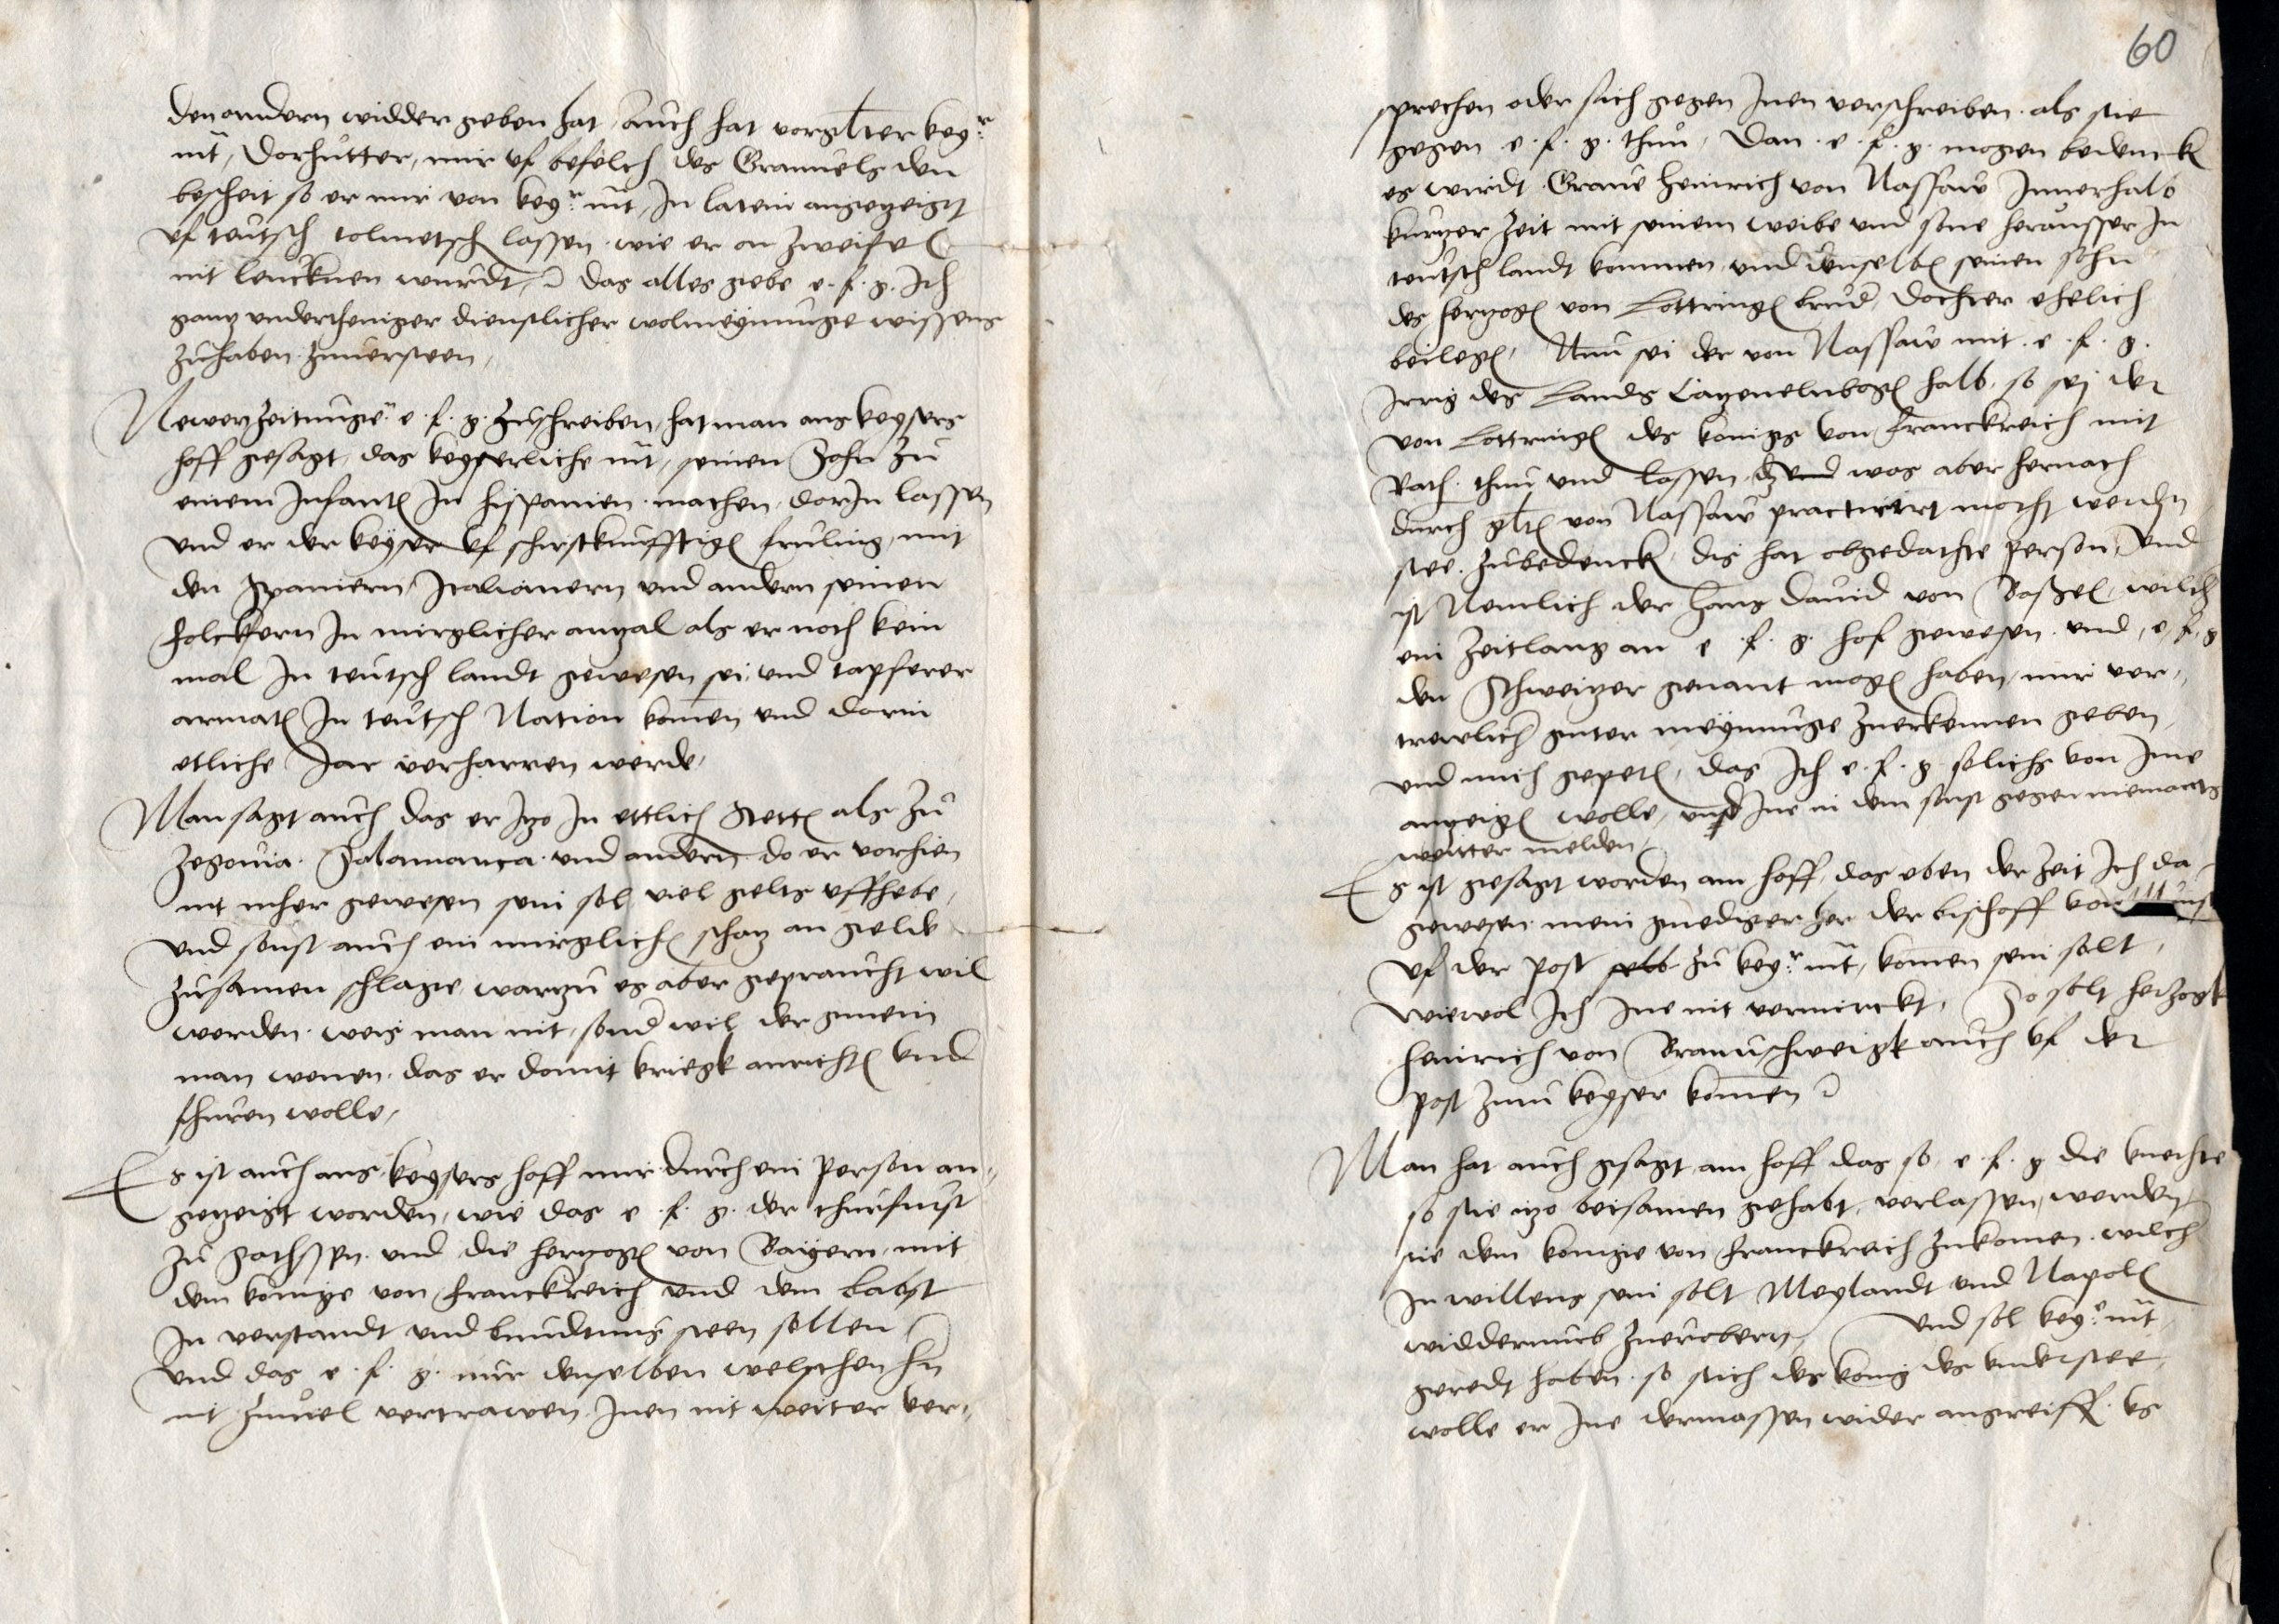 den andern widder geben hat, auch hat vorgltter keyr.
mt, Dorhutter, mir vf befelch des Granuels den
bescheit so er mir von keyr. mt, In latein angezeigt
vf teutsch tolmetsch lassen wie er on zweifel
nit leucknen wurdt, das alles gebe e. f. g. Ich
gantz undertheniger dienstlicher wolmeynunge wissens
zuhaben zuuersteen,
Newerzeitunge e. f. g. zuschreiben, hat man ans keysers
hoff gesagt, das keyserliche mt, seinen Sohn zu
einem Infanten In hispanien machen, dorIn lassen
und er der keyser vf schirstkunfftigen fruling, mit
den Spaniern Italianern und andern seinen
folckern In mirglicher anzal als er noch kein
mal In teutsch landt gewesen sei, und tapferer
armaten In teutsch Nation komen und dorin
etliche Jar verharren werde,
Man sagt auch das er Itzo In ettlich Stetten als zu
Zegouia. Salamanca und andern do er vorhien
nit mher gewesen sein sol viel gelts uffhebe,
und sonst auch ein mirglichen schatz an gelde
zusamen schlage, warzu es aber gepraucht wil
werden weis man nit, sonder wil der gmein
man wenen das er domit kriegk anrichten und
schuren wolle,
Es ist auch ans keysers hoff mir durch ein Person an-
gezeigt worden, wie das e. f. g. der churfurst
zu Sachssen und die hertzogen von Bayern mit
dem konige von Franckreich und dem babst
In verstandt und bundtnus steen sollen
und das e. f. g. nur denselben welschen hn
nit zuuiel vertrawen Inen nit weiter ver-
60
sprechen oder sich gegen Inen verschreiben als sie
gegen e. f. g. thun, Dan e. f. g. mogen bedencken
es wirdt Graue Heinrich von Nassaw Innerhalb
kurtzer Zeit mit seinem weibe und sone herausser In
teutsch landt kommen und denselben seinen sohn
des hertzogen von Lottringen bruder dochter ehelich
beilegen, Nun sei der von Nassaw mit e. f. g.
Irrig des Lands Catzenelnbogen halb, so sej der
von Lottringen des konigs von Franckreich mit
Rath thun und lassen, was aber hernach
durch glten von Nassaw practicirt mocht werden
stee zubedencken, dis hat obgedachte person, und
ist Nemlich der Hans Dauid von wilch
ein Zeitlang an e. f. g. hof gewesen und, e. f. g
den Schweitzer genant mogen haben, mir ver-
trewlicher guter meynunge zuerkennen geben
und mich gepeten, das Ich e. f. g solichs von Ime
anzeigen wolle, und Ine in dem sonst gegen niemants
weitter melden,
Es ist gesagt worden am hoff, das eben der zeit Ich da
gewesen mein gnediger her der bischoff von
vf der post selb zu keyr. mt, komen sein solt,
wiewol Ich Ine nit vermirckt, So solt hertzogk
Heinrich von Braunschweigk auch vf der
post zum keyser komen
Man hat auch gesagt am hoff das so, e. f. g die knechte
so sie itzo beisamen gehabt, verlassen, werden
sie dem konige von Franckreich zukomen wilcher
In willens sein solt Meylandt und Napolen
widderumb zuerobern, und sol keyr. mt,
geredt haben so sich der konig des understee,
wolle er Ine dermassen wider angreiffen es